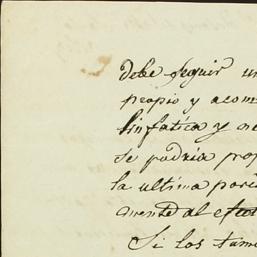 debe seguir un
propio y acom
linfatica y ne
se podria pro
la ultima porc
amente al efec
Si los tumo